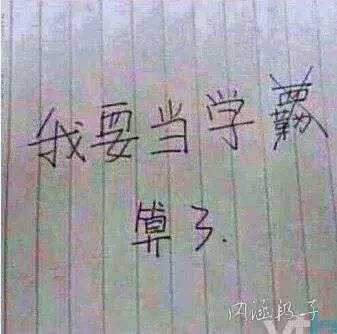 我要当学
算了.
内涵段子